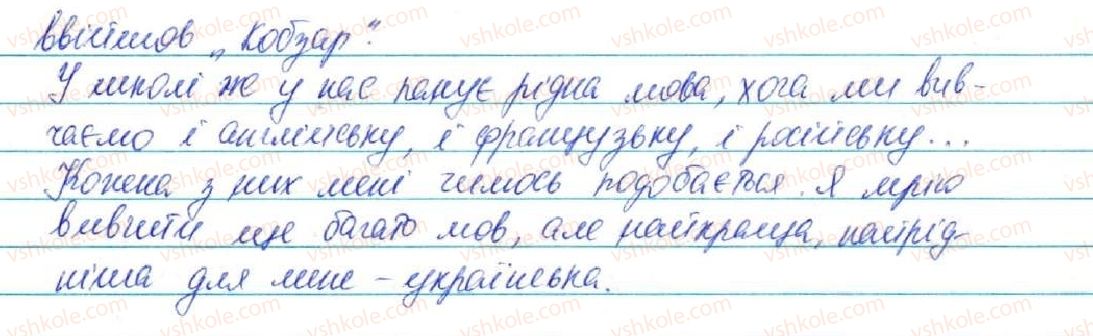 ввійшов „Кобзар".
У школі же у нас панує рідна мова, хоча ми вив-
чаємо і англійську, і французьку, і російську...
Кожна з них мені чимось подобається. Я мрію
вивчити ще багато мов, але найкраща, найрід-
ніша для мене – українська.